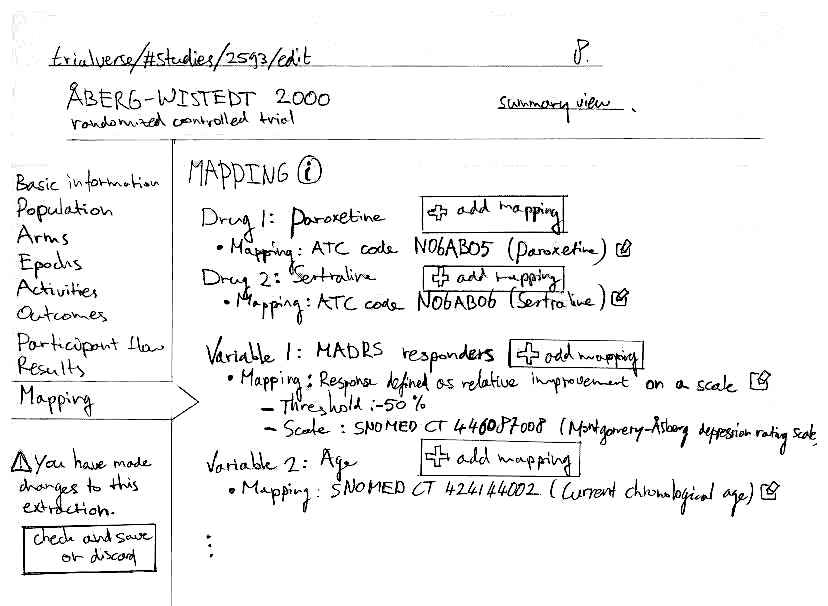 trialverse/#studies/2593/edit
8.
ÅBERG-WISTEDT 2000
summary view
randomized controlled trial
Basic information
Population
Arms
Epochs
Activities
Outcomes
Participant flow
Results
Mapping
⚠ You have made
changes to this
extraction.
check and save
or discard
MAPPING ⓘ
Drug 1: Paroxetine
+ add mapping
• Mapping: ATC code N06AB05 (Paroxetine)
Drug 2: Sertraline
+ add mapping
• Mapping: ATC code N06AB06 (Sertraline)
Variable 1: MADRS responders
+ add mapping
• Mapping: Response defined as relative improvement on a scale
– Threshold: -50%
– Scale: SNOMED CT 446087008 (Montgomery-Åsberg depression rating scale
Variable 2: Age
+ add mapping
• Mapping: SNOMED CT 424144002 (Current chronological age)
⋮